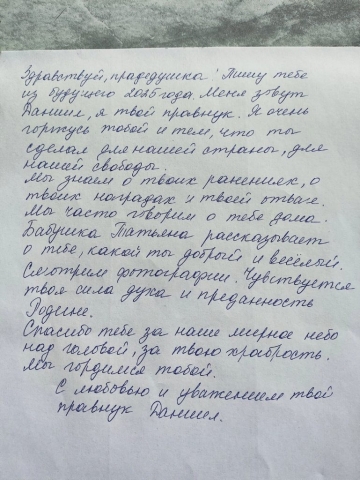 Здравствуй, прадедушка! Пишу тебе
из будущего 2025 года. Меня зовут
Даниил, я твой правнук. Я очень
горжусь тобой и тем, что ты
сделал для нашей страны, для
нашей свободы.
Мы знаем о твоих ранениях, о
твоих наградах и твоей отваге.
Мы часто говорим о тебе дома.
Бабушка Татьяна рассказывает
о тебе, какой ты добрый и весёлый.
Смотрим фотографии. Чувствуется
твоя сила духа и преданность
Родине.
Спасибо тебе за наше мирное небо
над головой, за твою храбрость.
Мы гордимся тобой.
С любовью и уважением твой
правнук Даниил.